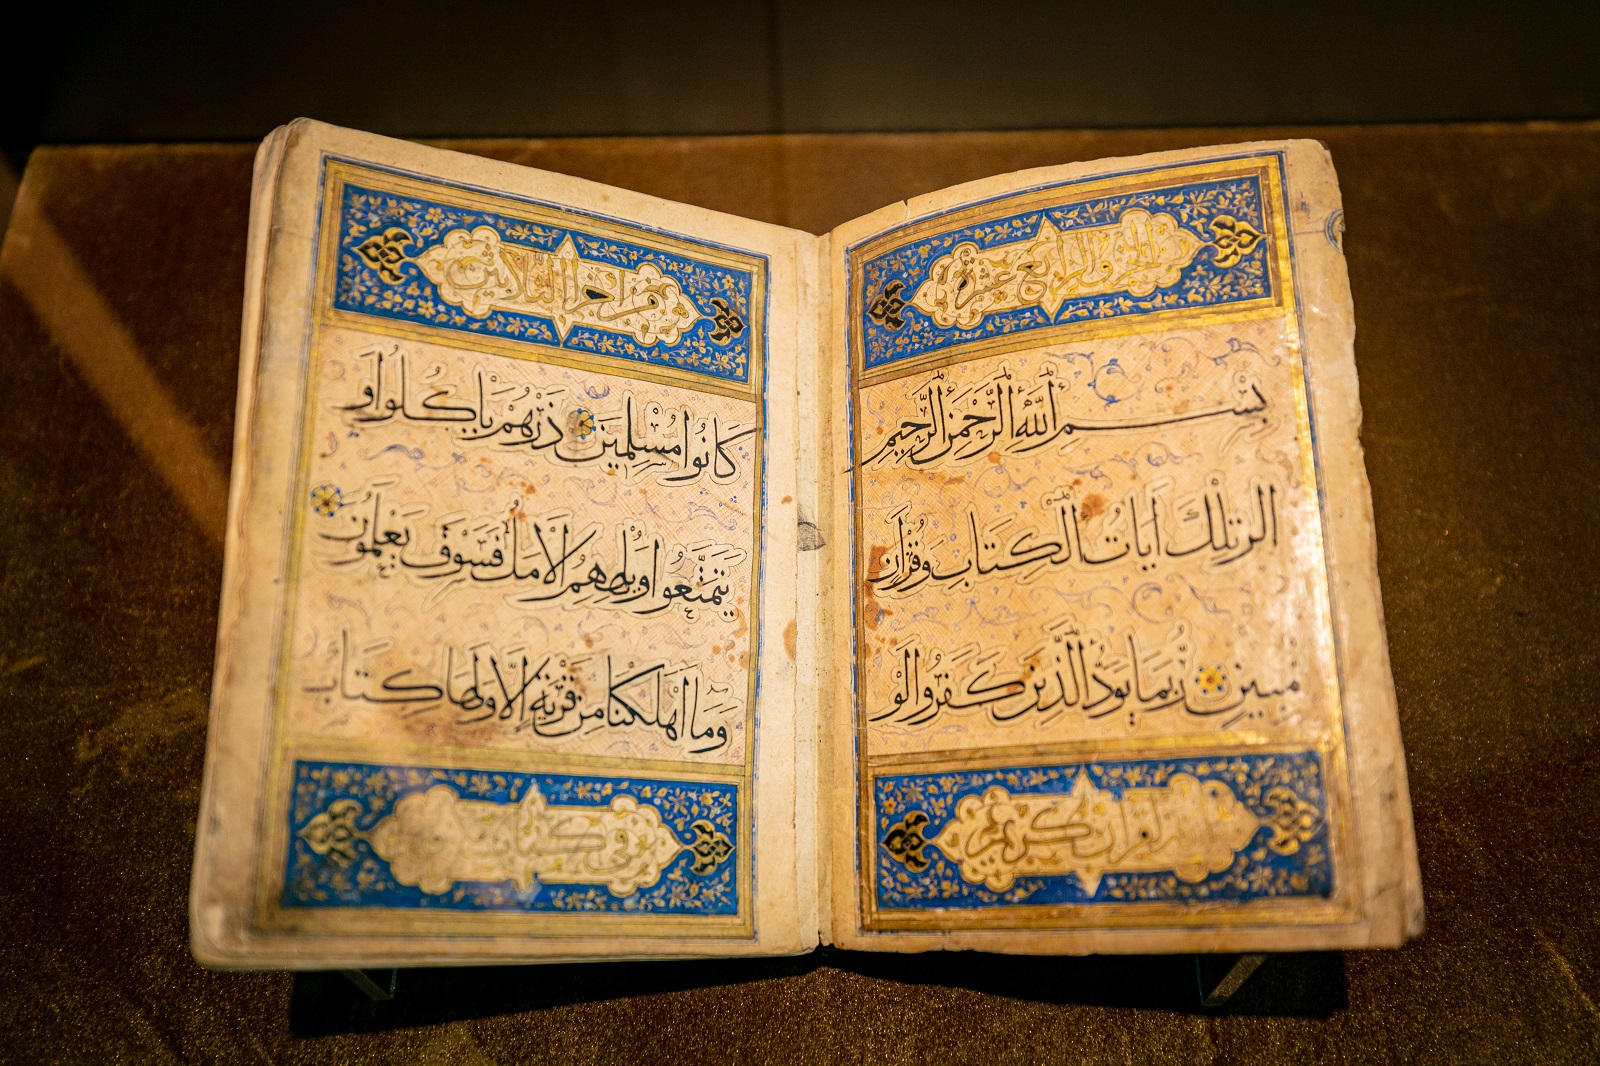 الجزو الرابع عشرة
بِسْمِ اللَّهِ الرَّحْمَنِ الرَّحِيمِ
الر تِلْكَ آيَاتُ الْكِتَابِ وَقُرْآنٍ
مُبِينٍ رُبَمَا يَوَدُّ الَّذِينَ كَفَرُوا لَوْ
لقرآن كريم في
كَانُوا مُسْلِمِينَ ذَرْهُمْ يَأْكُلُوا وَ
يَتَمَتَّعُوا وَيُلْهِهِمُ الْأَمَلُ فَسَوْفَ يَعْلَمُونَ
وَمَا أَهْلَكْنَا مِنْ قَرْيَةٍ إِلَّا وَلَهَا كِتَابٌ
كتاب